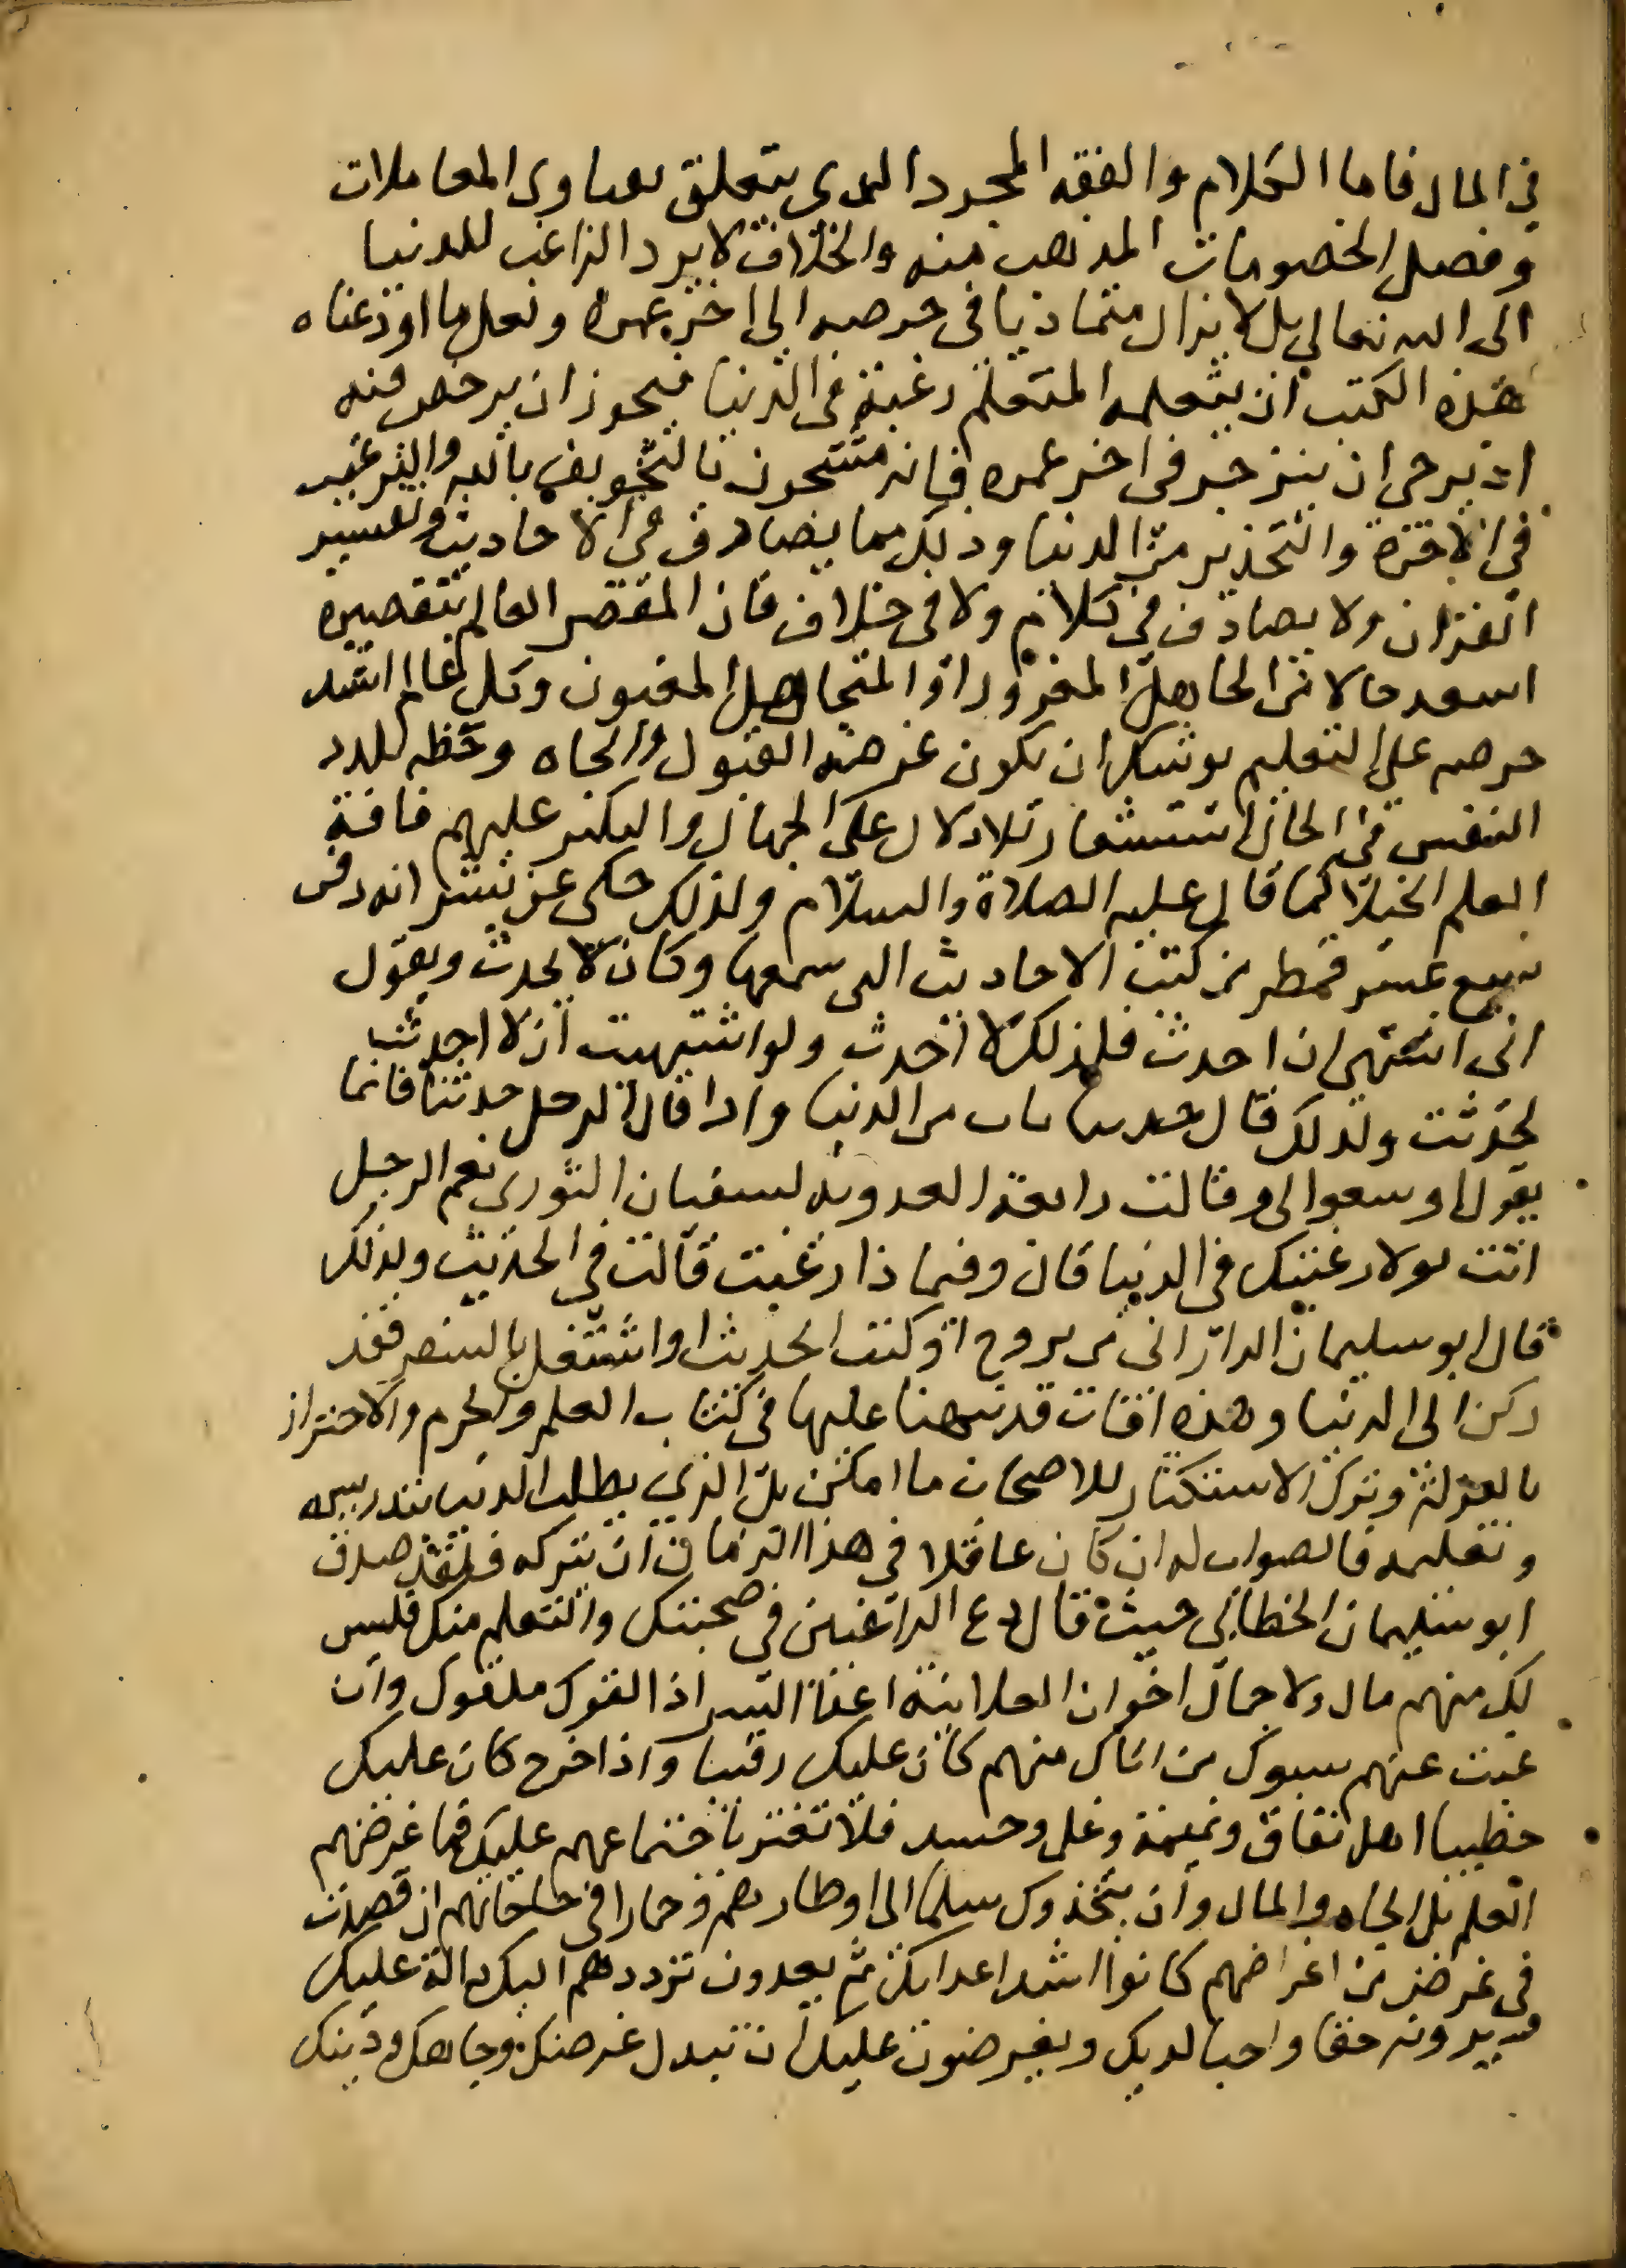 في المال فاما الكلام والفقه المجرد الذي يتعلق بفتاوى المعاملات
وفصل الخصومات المذهب منه والخلاف لا يرد الراغب للدنيا
الى الله تعالى بل لا يزال متماديا في حرصه الى اخر عمره ولعل ما اودعناه
هذه الكتب ان يتعلمه المتعلم رغبة في الدنيا فيجوز ان يرخص فيه
اذ يرجى ان ينزجر في اخر عمره فانه مشحون بالتخويف بالله والترغيب
في الاخرة والتحذير من الدنيا وذلك مما يصادف في الاحاديث وتفسير
القران ولا يصادف في كلام ولا في خلاف فان المقصر العالم بتقصيره
اسعد حالا من الجاهل المغرور او المتجاهل المغبون وكل عالم اشتد
حرصه على التعليم يوشك ان يكون غرضه القبول والجاه وحظه تلذذ
النفس في الحال استشعار تلادلال على الجهال والتكبر عليهم فافة
العلم الخيلا كما قال عليه الصلاة والسلام ولذلك حكى عن بشر انه دفن
سبع عشر قمطر من كتب الاحاديث التي سمعها وكان لا يحدث ويقول
انى اشتهي ان احدث فلذلك لا احدث ولو اشتهيت ان لا احدث
لحدثت ولذلك قال حدثنا باب من الدنيا واذا قال الرجل حدثنا فانما
يقول اوسعوا لي وقالت رابعة العدوية لسفيان الثوري نعم الرجل
انت لولا رغبتك في الدنيا قال وفيما ذا رغبت قالت في الحديث ولذلك
قال ابو سليمان الداراني من تزوج او كتب الحديث او اشتغل بالسفر فقد
ركن الى الدنيا وهذه افات قد نبهنا عليها في كتاب العلم والحزم والاحتراز
بالعزلة وترك الاستكثار للاصحاب ما امكن بل الذي يطلب الدنيا بتدريسه
وتعليمه فالصواب له ان كان عاقلا في هذا الزمان ان يتركه فلقد صدق
ابو سليمان الخطابي حيث قال دع الراغبين في صحبتك والتعلم منك فليس
لك منهم مال ولا جمال اخوان العلانية اعدا السر اذا لقوك ملقوك وان
غبت عنهم سبوك من اتاك منهم كان عليك رقيبا واذا خرج كان عليك
خطيبا اهل نفاق ونميمة وغل وحسد فلا تغتر باجتماعهم عليك فما غرضهم
العلم بل الجاه والمال وان يتخذوك سلما الى اوطارهم وحمارا في حاجاتهم ان قصرت
في غرض من اغراضهم كانوا اشد اعدايك ثم يعدون ترددهم اليك دالة عليك
ويرونه حقا واجبا لديك ويفرضون عليك ان تبدل عرضك وجاهك ودينك